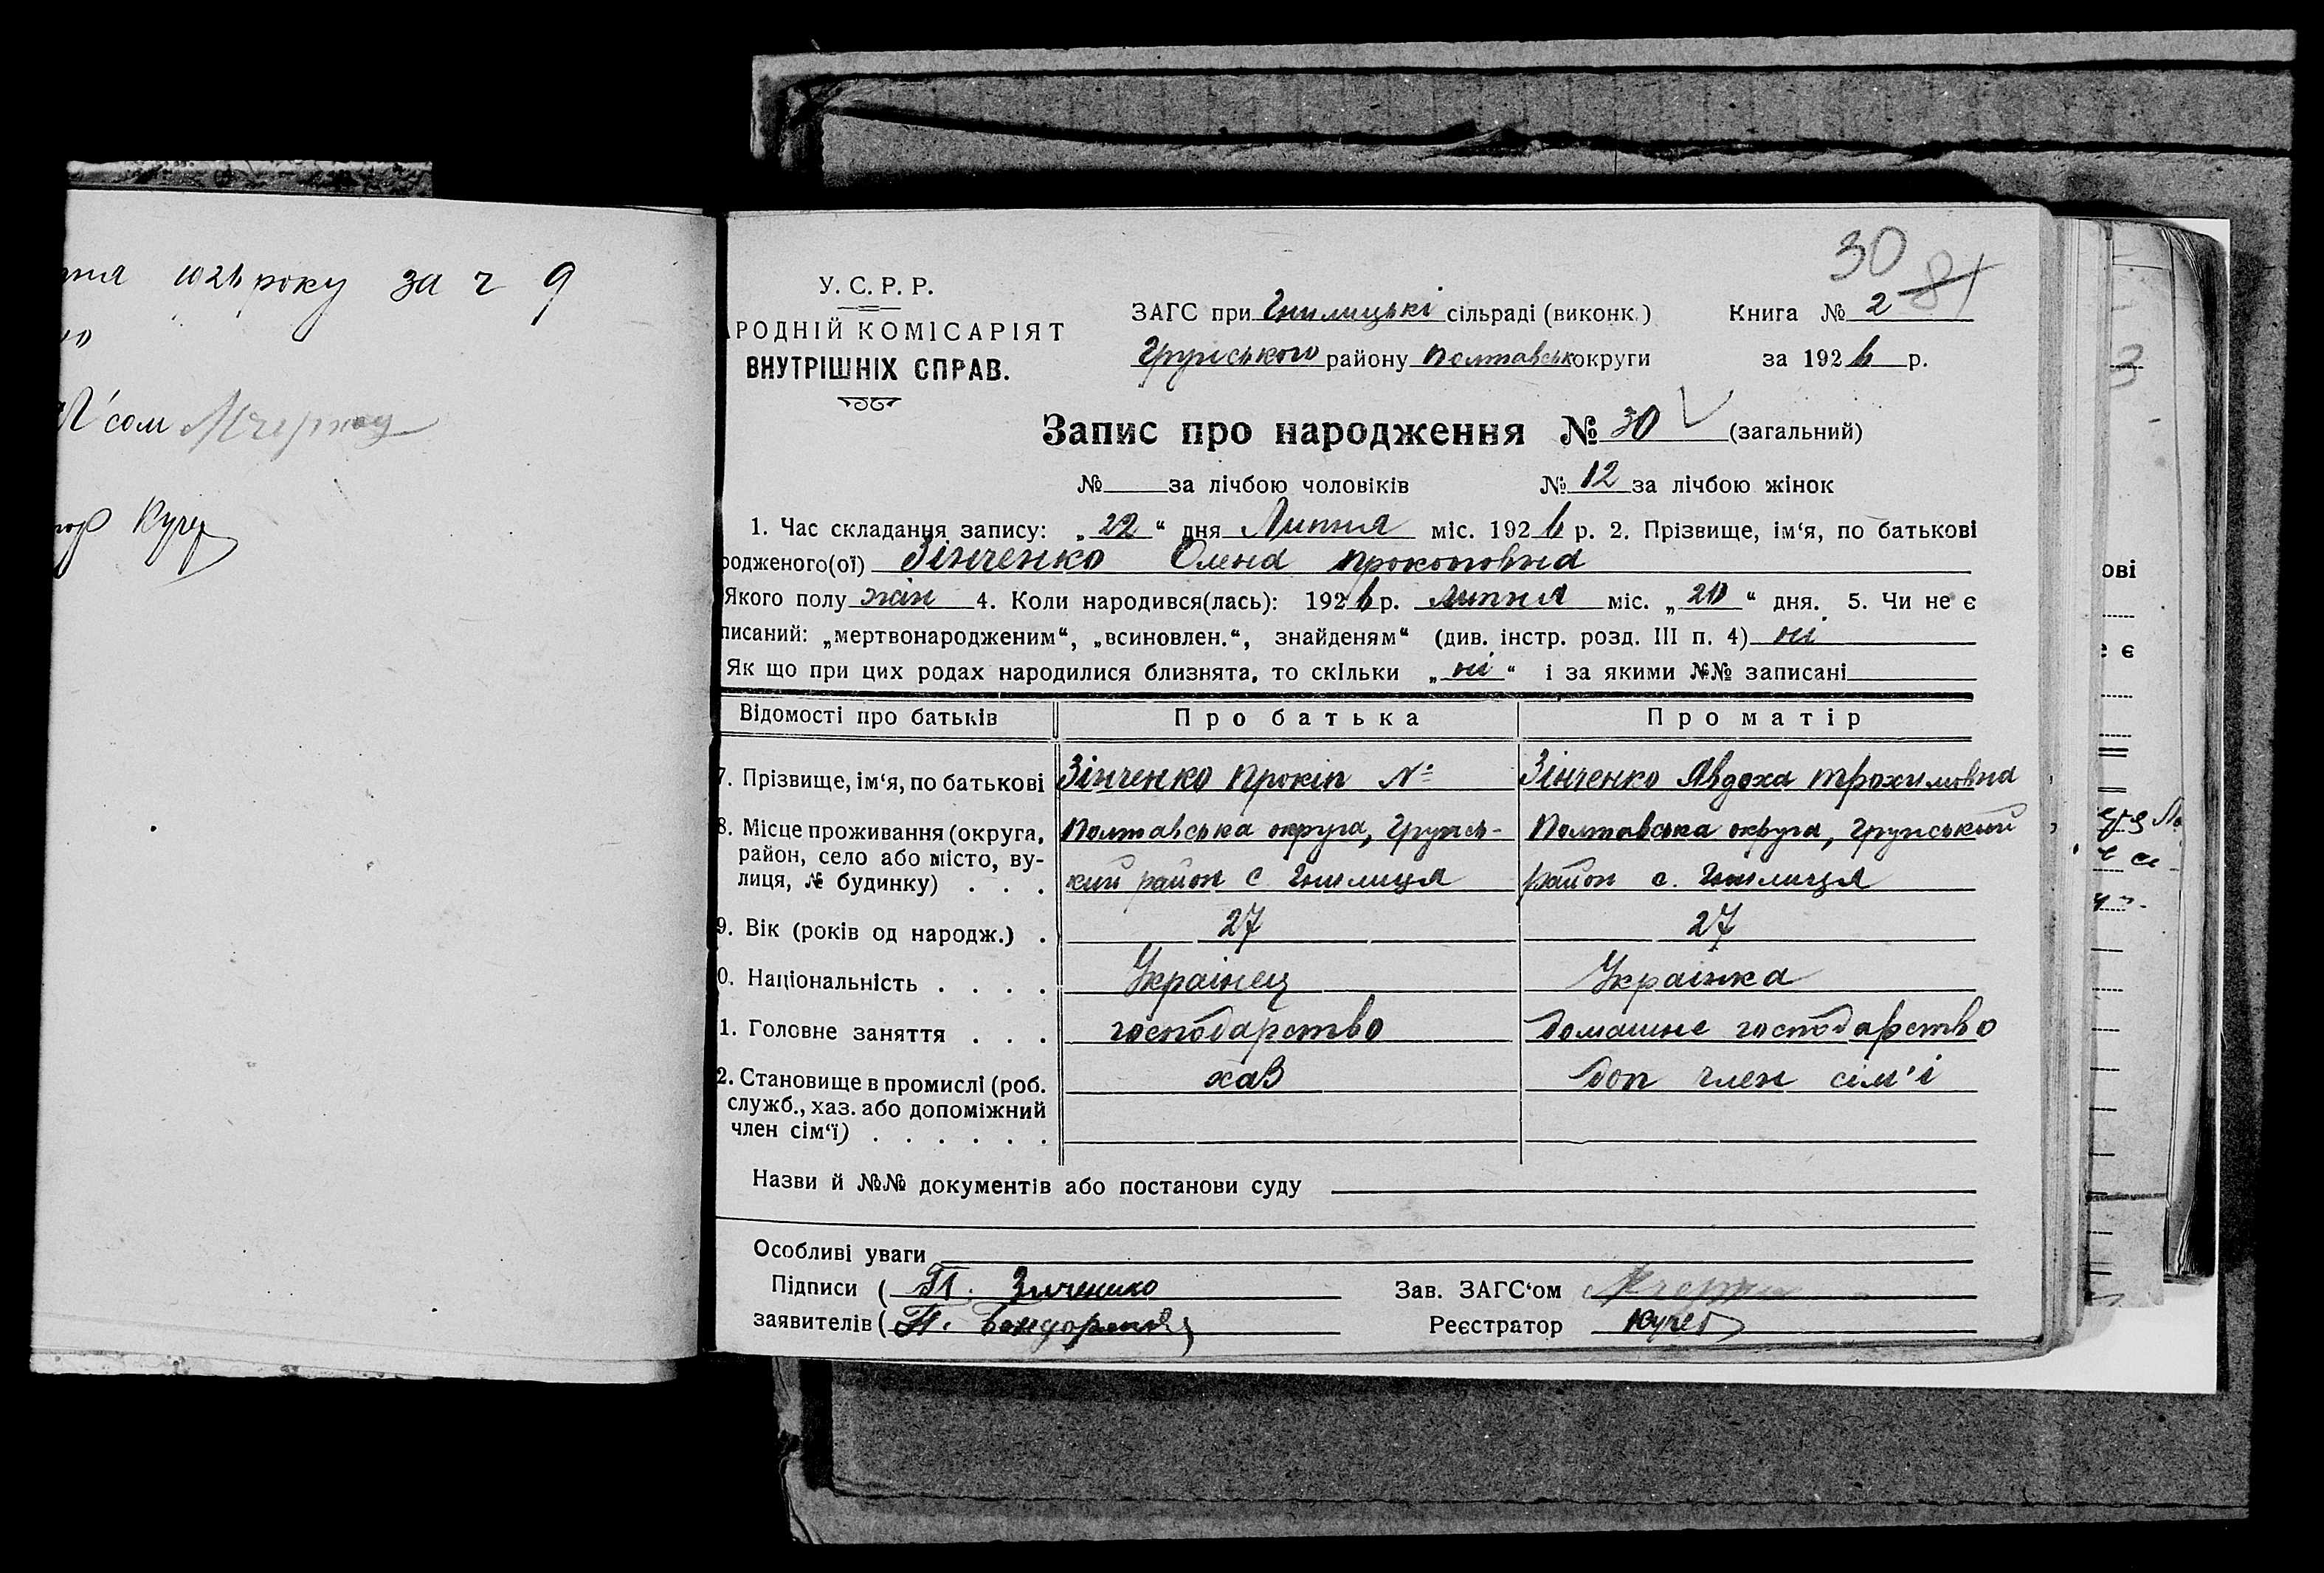 1926 року за ч 9
сом
Кучер
30
81
У. С. Р. Р.
РОДНІЙ КОМІСАРІЯТ
ВНУТРІШНІХ СПРАВ.
ЗАГС при Гнилицькі сільраді (виконк.)
Грунського району Полтавськ округи
Книга № 2
за 1926 р.
Запис про народження № 30 (загальний)
№ за лічбою чоловіків № 12 за лічбою жінок
1. Час складання запису: „22“ дня Липня міс. 1926 р. 2. Прізвище, ім‘я, по батькові
родженого(ої) Зінченко Олена Прокоповна
Якого полу жін 4. Коли народився(лась): 1926 р. липня міс. „20“ дня. 5. Чи не є
писаний: „мертвонародженим“, „всиновлен.“, знайденям“ (див. інстр. розд. III п. 4) ні
Як що при цих родах народилися близнята, то скільки „ні“ і за якими №№ записані
Відомості про батьків Про батька Про матір
7. Прізвище, ім‘я, по батькові Зінченко Прокіп № Зінченко Явдоха Трохимовна
8. Місце проживання (округа, Полтавська округа, Грунсь- Полтавська округа, Грунський
район, село або місто, ву-
лиця, № будинку) . . . кий район с Гнилиця район с. Гнилиця
9. Вік (років од народж.) . 27 27
0. Національність . . . . Украінец Украінка
1. Головне заняття . . . господарство домашне господарство
2. Становище в промислі (роб. хаз доп член сім'і
служб., хаз. або допоміжний
член сім‘ї) . . . . . .
Назви й №№ документів або постанови суду
Особливі уваги
Підписи ( П. Зинченко Зав. ЗАГС‘ом
заявителів ( П. Реєстратор Кучер
ові
є